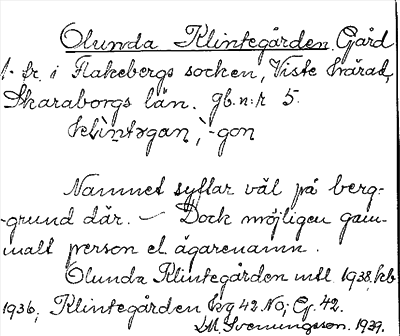 Olunda Klintegården Gård
1. fr. i Flakebergs socken, Viste härad,
Skaraborgs län. Jb.n:r 5.
klìntəgan, -gon
Namnet syftar väl på berg-
-grund där. – Dock möjligen gam-
malt person el. ägarenamn.
Olunda Klintegården mtl 1938, kb
1936, Klintegården kg 42 NO; Cg. 42.
M. Svenungsson. 1939.